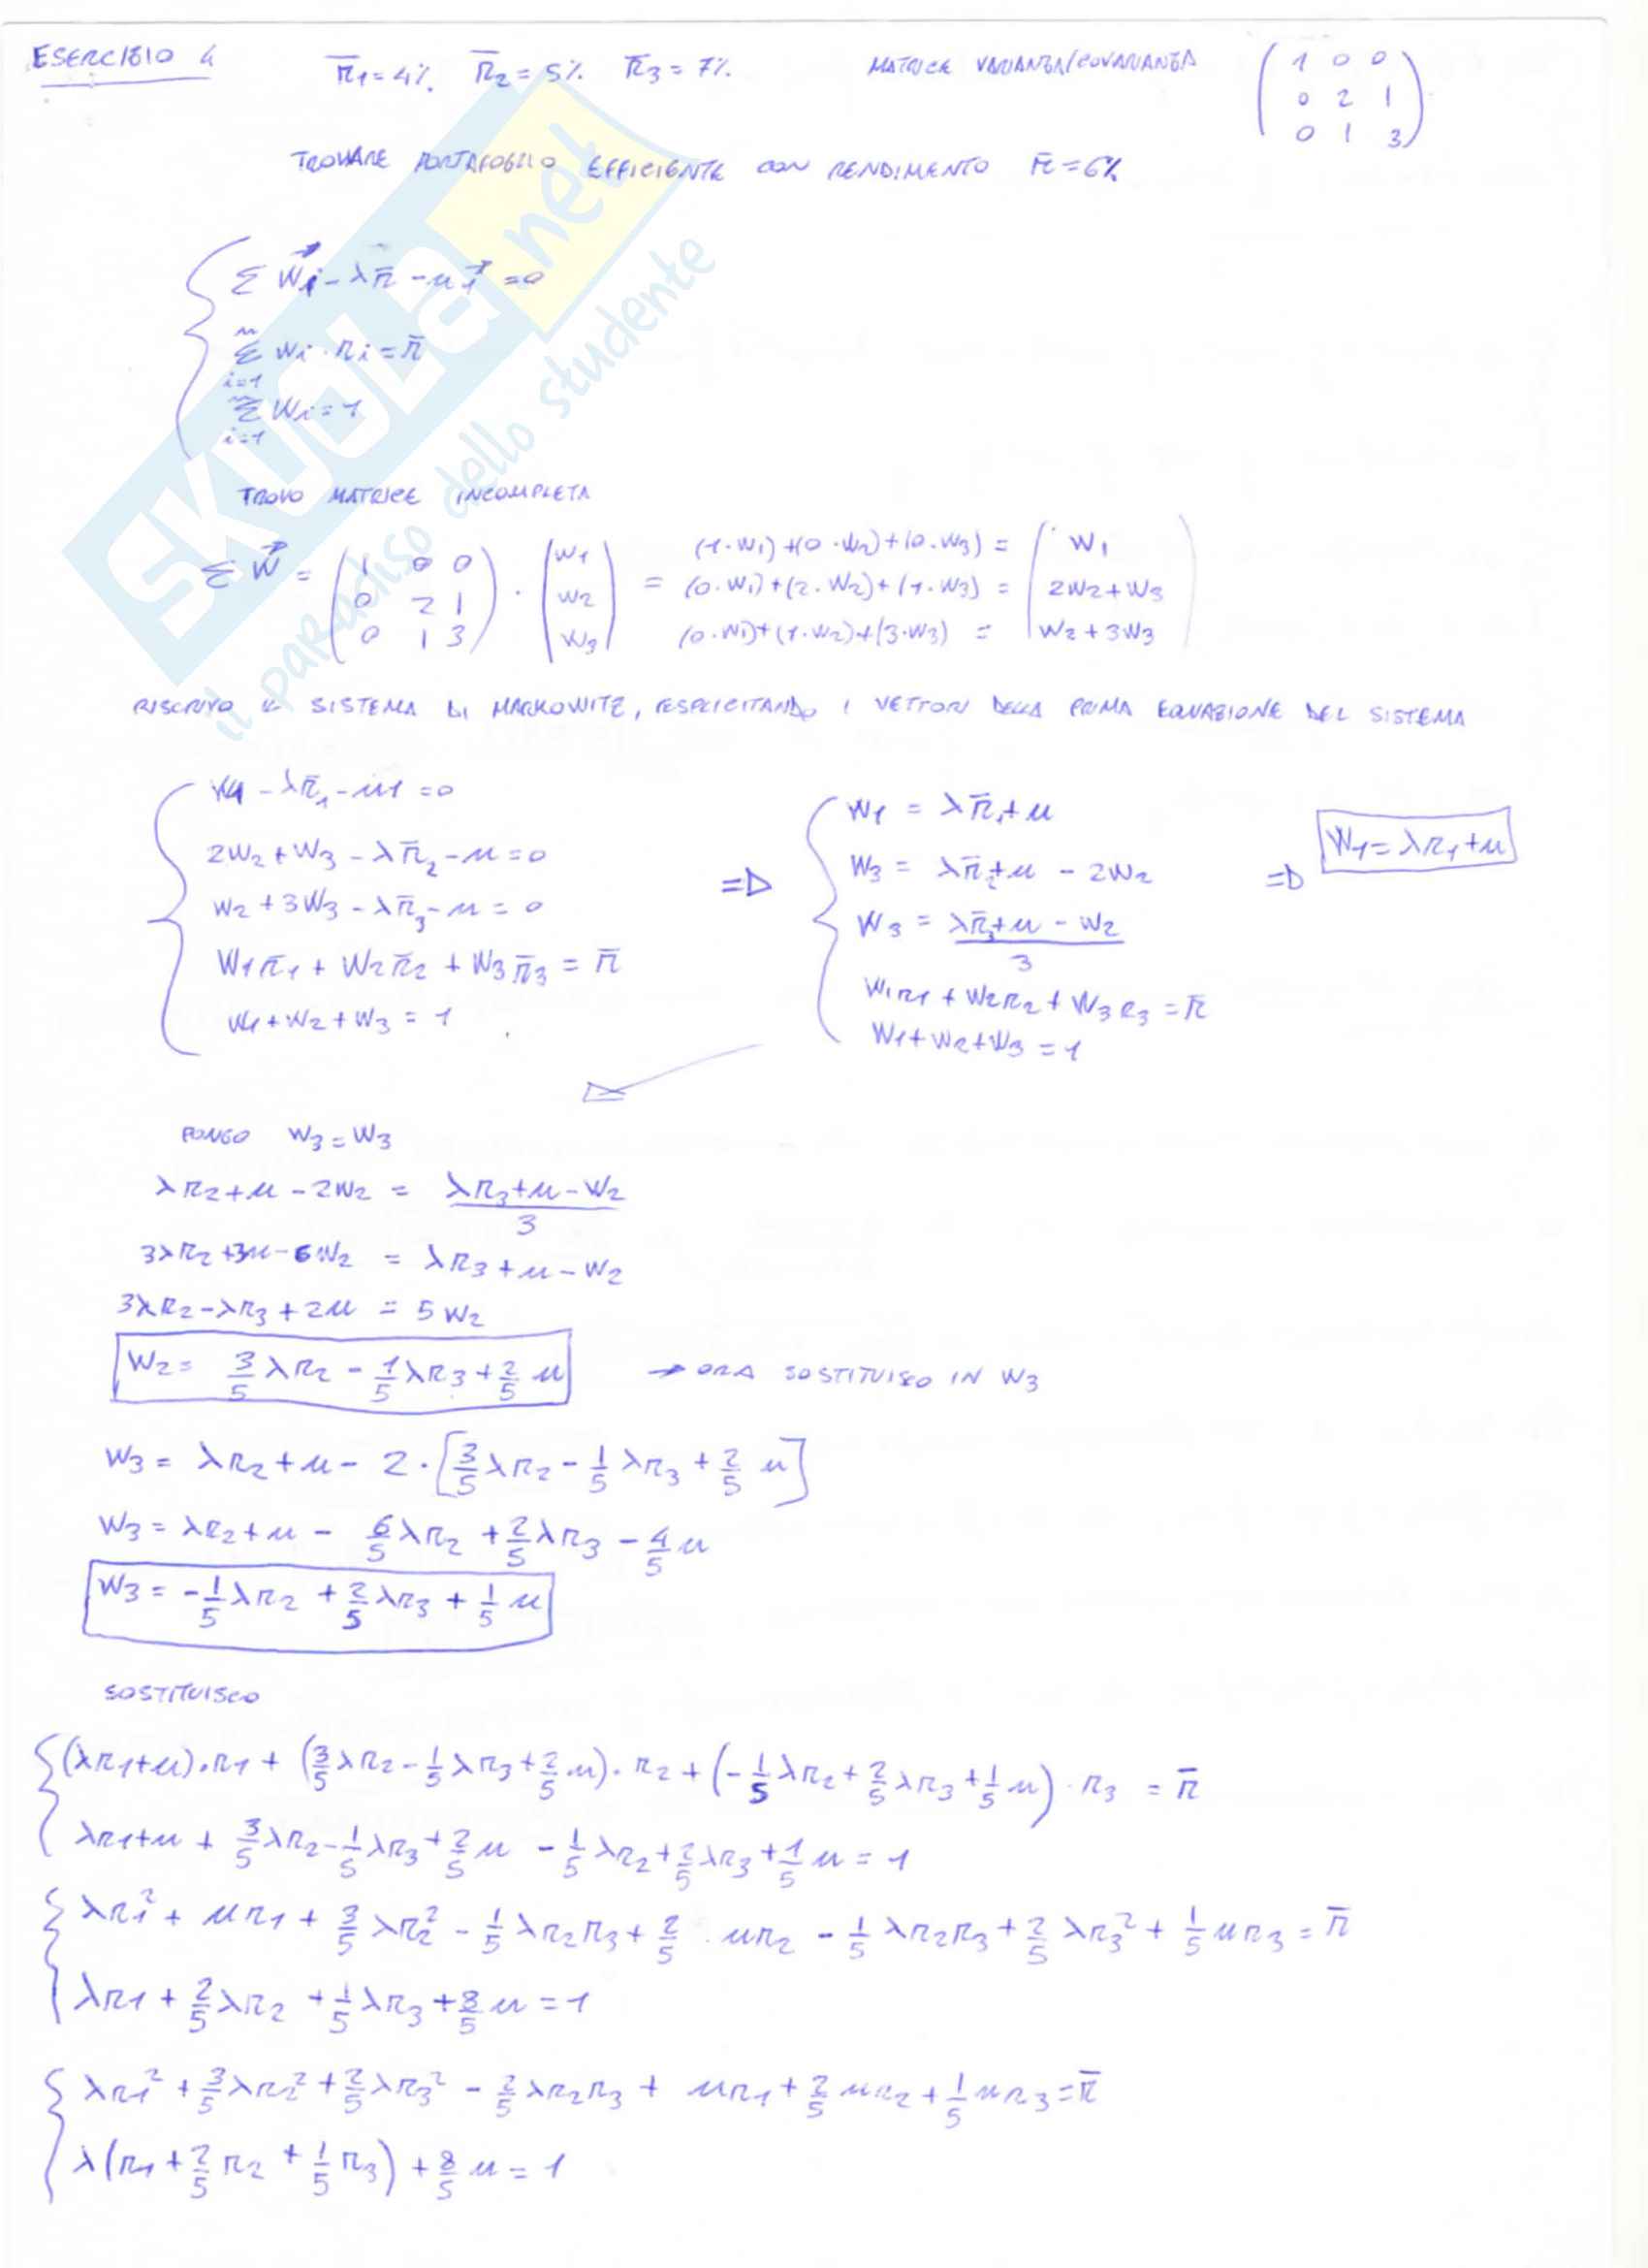 ESERCIZIO 4 r̄1=4% r̄2=5% r̄3=7% MATRICE VARIANZA/COVARIANZA (1 0 0
0 2 1
0 1 3)
TROVARE PORTAFOGLIO EFFICIENTE CON RENDIMENTO r̄=6%
Σ w⃗i - λr̄ - μ1⃗ =0
Σ wi·ri = r̄
i=1
Σ wi = 1
i=1
TROVO MATRICE INCOMPLETA
Σ w⃗ = (1 0 0) · (w1) = (1·w1)+(0·w2)+(0·w3) = (w1)
(0 2 1) (w2) (0·w1)+(2·w2)+(1·w3) = (2w2+w3)
(0 1 3) (w3) (0·w1)+(1·w2)+(3·w3) = (w2+3w3)
RISCRIVO IL SISTEMA DI MARKOWITZ, ESPLICITANDO I VETTORI DELLA PRIMA EQUAZIONE DEL SISTEMA
w1 - λr̄1 - μ1 = 0
2w2 + w3 - λr̄2 - μ = 0
w2 + 3w3 - λr̄3 - μ = 0
w1r̄1 + w2r̄2 + w3r̄3 = r̄
w1+w2+w3 = 1
=> w1 = λr̄1+μ
w3 = λr̄2+μ - 2w2
w3 = (λr̄3+μ - w2)/3
w1r1 + w2r2 + w3r3 = r̄
w1+w2+w3 = 1
=> w1=λr1+μ
PONGO w3=w3
λr2+μ-2w2 = (λr3+μ-w2)/3
3λr2+3μ-6w2 = λr3+μ-w2
3λr2-λr3+2μ = 5w2
w2= 3/5 λr2 - 1/5 λr3 + 2/5 μ → ORA SOSTITUISCO IN w3
w3 = λr2+μ - 2·[3/5 λr2 - 1/5 λr3 + 2/5 μ]
w3 = λr2+μ - 6/5 λr2 + 2/5 λr3 - 4/5 μ
w3 = -1/5 λr2 + 2/5 λr3 + 1/5 μ
SOSTITUISCO
(λr1+μ)·r1 + (3/5 λr2 - 1/5 λr3 + 2/5 μ)·r2 + (-1/5 λr2 + 2/5 λr3 + 1/5 μ)·r3 = r̄
λr1+μ + 3/5 λr2 - 1/5 λr3 + 2/5 μ - 1/5 λr2 + 2/5 λr3 + 1/5 μ = 1
λr1² + μr1 + 3/5 λr2² - 1/5 λr2r3 + 2/5 · μr2 - 1/5 λr2r3 + 2/5 λr3² + 1/5 μr3 = r̄
λr1 + 2/5 λr2 + 1/5 λr3 + 8/5 μ = 1
λr1² + 3/5 λr2² + 2/5 λr3² - 2/5 λr2r3 + μr1 + 2/5 μr2 + 1/5 μr3 = r̄
λ(r1 + 2/5 r2 + 1/5 r3) + 8/5 μ = 1
SKUOLA.net
il paradiso dello studente